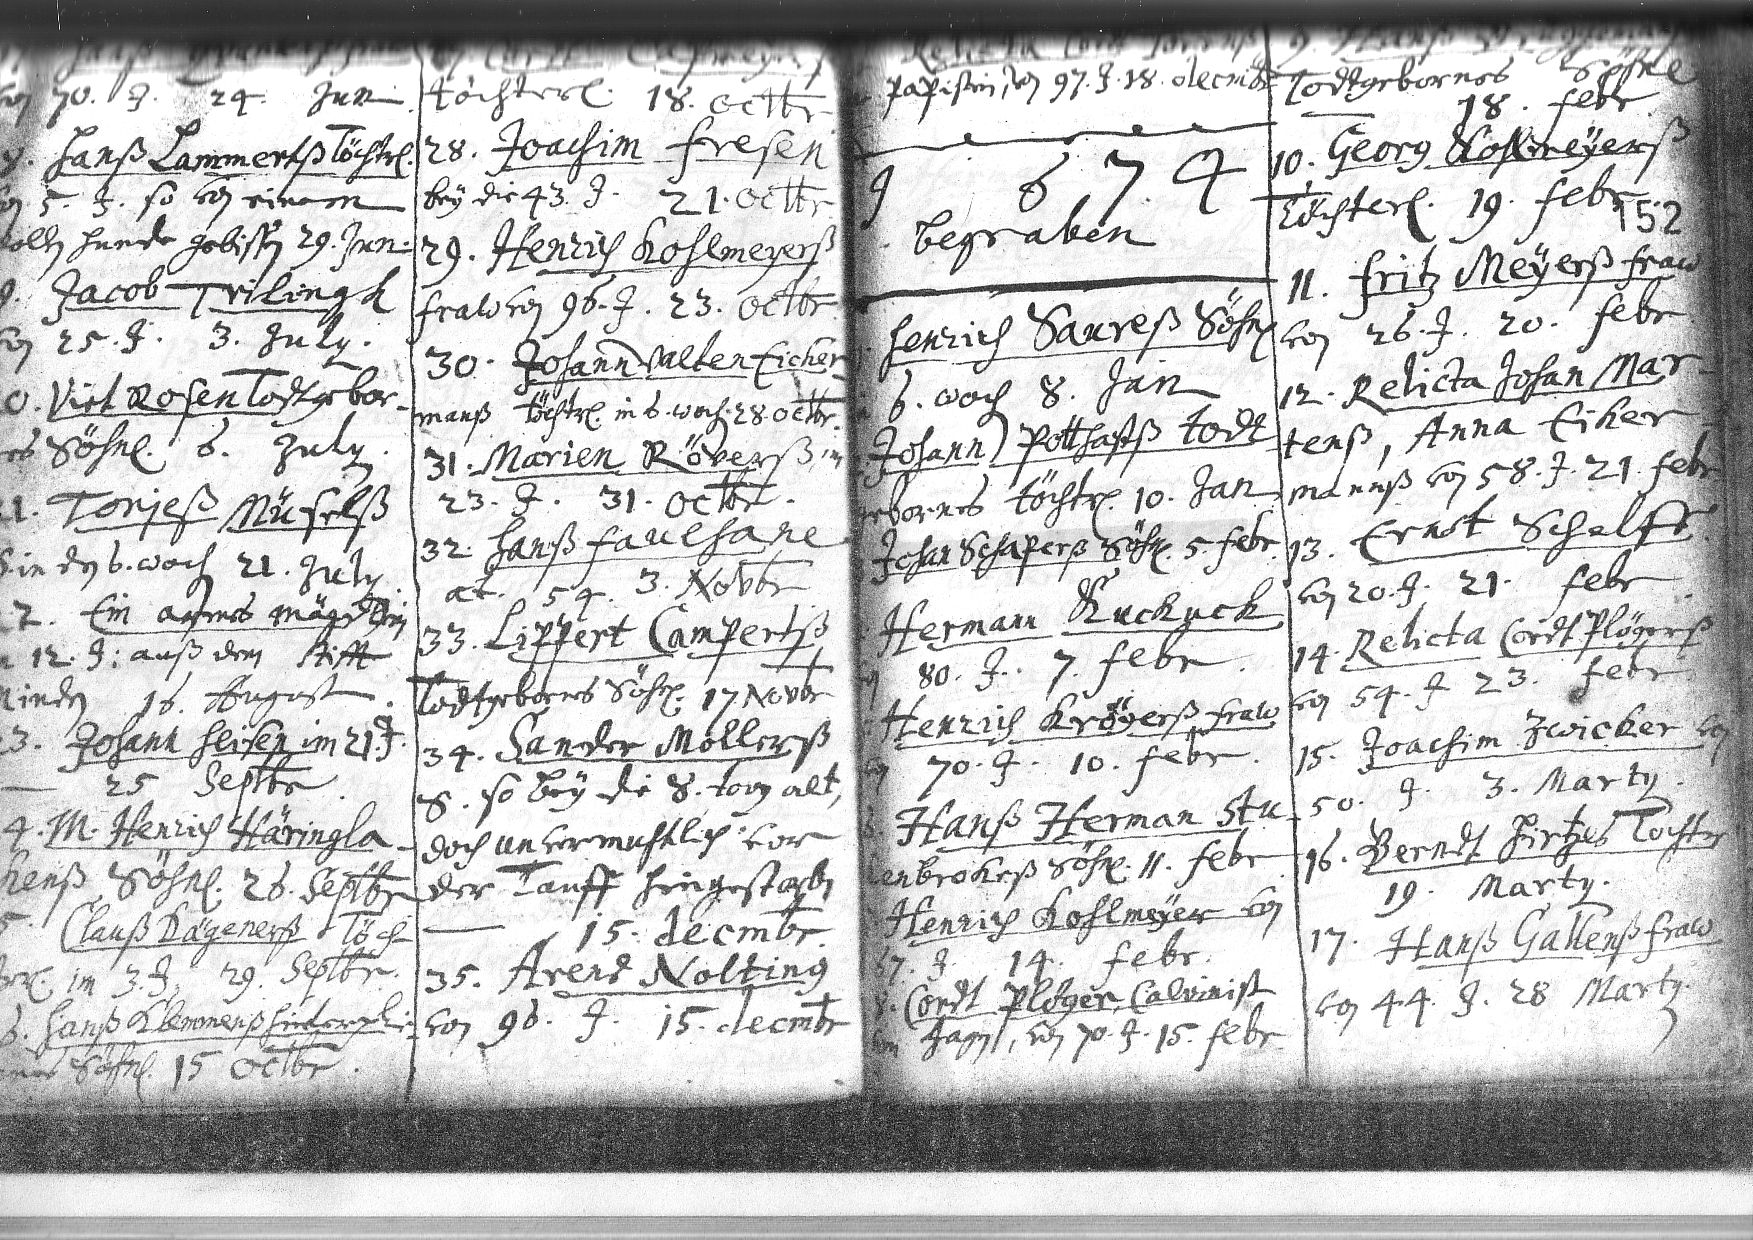 70. J. 24. Jun
Hanß Lammertß Töchterl.
5. J. so von einem
hunde gebissen 29. Jun.
Jacob Trilingk
von 25. J. 3. July.
Viet Rosen Todtgebor-
nes Söhnl. 6. July.
21. Tonjeß Müselß
S. in der 6. woch 21. July
22. Ein armes mägdlein
12. J. auß dem Stifft
Minden 16. August.
23. Johann Heisen im 21 J.
25 Septbr.
24. M. Henrich Häringla-
kenß Söhnl. 26. Septbr
Clauß Kägenerß Töch-
terl. im 3. J. 29. Septbr.
26. Hanß Klemmenß
Söhnl. 15 Octbr.
Töchterl. 18. Octbr
28. Joachim Fresen
bey die 43. J. 21. Octbr
29. Henrich Kohlmeyerß
fraw von 96. J. 23. Octbr
30. Johann Valten Eicker-
manß Töchterl. in 6. woch. 28 Octbr.
31. Marien Röverß, im
23. J. 31. Octbr.
32. Hanß Faulhane
æt. 54. 3. Novbr
33. Lippert Campertß
Todtgebornes Söhnl. 17 Novbr
34. Sander Möllerß
S. so bey die 8. tag alt,
doch unvermuhtlich vor
der Tauff hingestorben
15. decmbr.
35. Arend Nolting
von 96. J. 15. decmbr
Relicta Cordt
Papistin, von 97. J. 18. decmbr
1674
begraben
Henrich Saureß Söhnl
6. woch 8. Jan
Johann Potthastß todt
gebornes töchterl. 10. Jan
Johan Schaperß Söhnl. 5. febr.
Hermann Kuckuck
von 80. J. 7. febr.
Henrich Kröyerß fraw
von 70. J. 10. febr.
Hanß Herman Stu-
enbrokeß Söhnl. 11. febr
Henrich Kohlmeyer von
67. J. 14. febr.
8. Cordt Plöger, Calvinist
von 70. J. 15. febr
9. Hanß
Todtgebornes Söhnl
18. febr
10. Georg Kohlmeyerß
Töchterl. 19. febr.
152
11. Fritz Meyerß fraw
von 26. J. 20. febr
12. Relicta Johan Mar-
tenß, Anna Eiker-
mannß von 58. J. 21. febr
13. Ernst Schelff
von 20. J. 21. febr
14. Relicta Cordt Plögerß
von 54. J 23. febr.
15. Joachim Zwicker von
50. J. 3. Marty.
16. Berndt Hirtzes Tochter
19. Marty.
17. Hanß Gallenß fraw
von 44. J. 28 Marty.